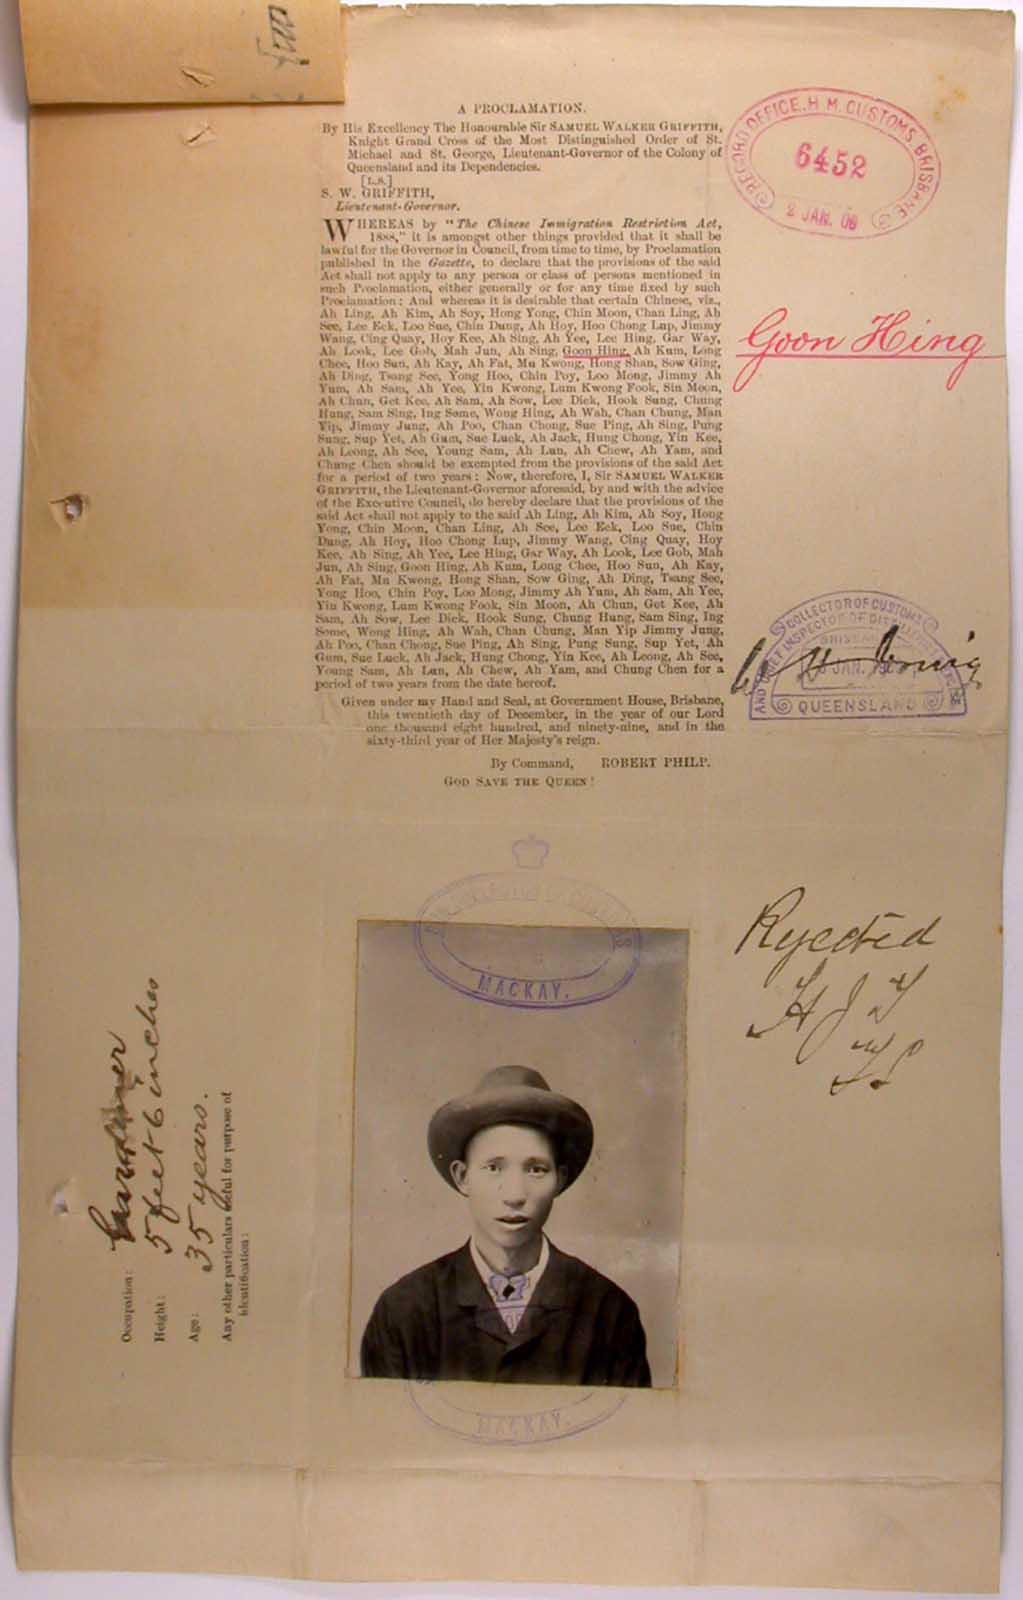 A PROCLAMATION.
By His Excellency The Honourable Sir SAMUEL WALKER GRIFFITH,
Knight Grand Cross of the Most Distinguished Order of St.
Michael and St. George, Lieutenant-Governor of the Colony of
Queensland and its Dependencies.
[L.S.]
S. W. GRIFFITH,
Lieutenant-Governor.
WHEREAS by "The Chinese Immigration Restriction Act,
1888," it is amongst other things provided that it shall be
lawful for the Governor in Council, from time to time, by Proclamation
published in the Gazette, to declare that the provisions of the said
Act shall not apply to any person or class of persons mentioned in
such Proclamation, either generally or for any time fixed by such
Proclamation: And whereas it is desirable that certain Chinese, viz.,
Ah Ling, Ah Kim, Ah Soy, Hong Yong, Chin Moon, Chan Ling, Ah
See, Lee Eck, Loo Sue, Chin Dung, Ah Hoy, Hoo Chong Lup, Jimmy
Wang, Cing Quay, Hoy Kee, Ah Sing, Ah Yee, Lee Hing, Gar Way,
Ah Look, Lee Gob, Mah Jun, Ah Sing, Goon Hing, Ah Kum, Long
Chee, Hoo Sun, Ah Kay, Ah Fat, Mu Kwong, Hong Shan, Sow Ging,
Ah Ding, Tsang See, Yong Hoo, Chin Poy, Loo Mong, Jimmy Ah
Yum, Ah Sam, Ah Yee, Yin Kwong, Lum Kwong Fook, Sin Moon,
Ah Chun, Get Kee, Ah Sam, Ah Sow, Lee Dick, Hook Sung, Chung
Hung, Sam Sing, Ing Some, Wong Hing, Ah Wah, Chan Chung, Man
Yip, Jimmy Jung, Ah Poo, Chan Chong, Sue Ping, Ah Sing, Pung
Sung, Sup Yet, Ah Gum, Sue Luck, Ah Jack, Hung Chong, Yin Kee,
Ah Leong, Ah See, Young Sam, Ah Lun, Ah Chew, Ah Yam, and
Chung Chen should be exempted from the provisions of the said Act
for a period of two years: Now, therefore, I, Sir SAMUEL WALKER
GRIFFITH, the Lieutenant-Governor aforesaid, by and with the advice
of the Executive Council, do hereby declare that the provisions of the
said Act shall not apply to the said Ah Ling, Ah Kim, Ah Soy, Hong
Yong, Chin Moon, Chan Ling, Ah See, Lee Eck, Loo Sue, Chin
Dung, Ah Hoy, Hoo Chong Lup, Jimmy Wang, Cing Quay, Hoy
Kee, Ah Sing, Ah Yee, Lee Hing, Gar Way, Ah Look, Lee Gob, Mah
Jun, Ah Sing, Goon Hing, Ah Kum, Long Chee, Hoo Sun, Ah Kay,
Ah Fat, Mu Kwong, Hong Shan, Sow Ging, Ah Ding, Tsang See,
Yong Hoo, Chin Poy, Loo Mong, Jimmy Ah Yum, Ah Sam, Ah Yee,
Yin Kwong, Lum Kwong Fook, Sin Moon, Ah Chun, Get Kee, Ah
Sam, Ah Sow, Lee Dick, Hook Sung, Chung Hung, Sam Sing, Ing
Some, Wong Hing, Ah Wah, Chan Chung, Man Yip Jimmy Jung,
Ah Poo, Chan Chong, Sue Ping, Ah Sing, Pung Sung, Sup Yet, Ah
Gum, Sue Luck, Ah Jack, Hung Chong, Yin Kee, Ah Leong, Ah See,
Young Sam, Ah Lun, Ah Chew, Ah Yam, and Chung Chen for a
period of two years from the date hereof.
Given under my Hand and Seal, at Government House, Brisbane,
this twentieth day of December, in the year of our Lord
one thousand eight hundred, and ninety-nine, and in the
sixty-third year of Her Majesty's reign.
By Command, ROBERT PHILP.
GOD SAVE THE QUEEN!
RECORD OFFICE. H. M. CUSTOMS, BRISBANE
6452
2 JAN. 00
Goon Hing
COLLECTOR OF CUSTOMS
AND CHIEF INSPECTOR OF DISTILLERIES
BRISBANE
JAN.
QUEENSLAND
Rejected
H J T
MACKAY.
MACKAY.
Occupation: Gardiner
Height: 5 feet 6 inches
Age: 35 years.
Any other particulars useful for purpose of
identification: